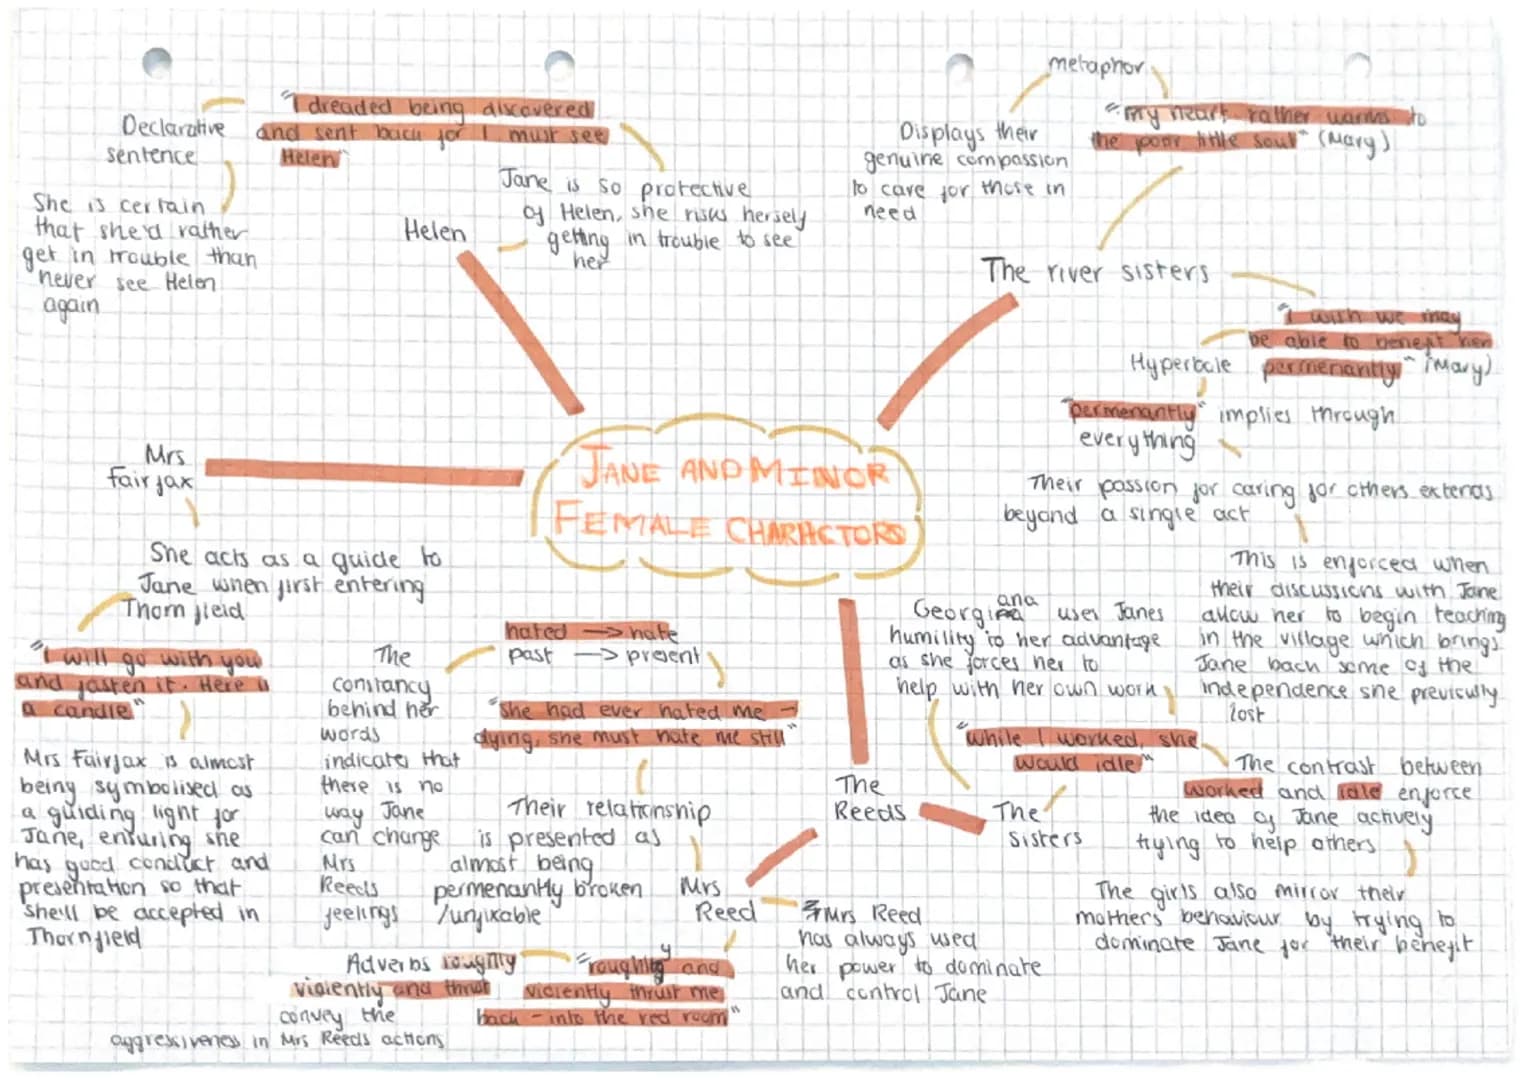 JANE AND MINOR
FEMALE CHARACTORS
Helen
"I dreaded being discovered
and sent back for I must see
Helen"
Declarative
sentence
She is certain
that she'd rather
get in trouble than
never see Helen
again
Jane is so protective
of Helen, she risks herself
getting in trouble to see
her
The river sisters
metaphor
"my heart rather warms to
the poor little soul" (Mary)
Displays their
genuine compassion
to care for those in
need
"I wish we may
be able to benefit her
permenantly" (Mary)
Hyperbole
"permenantly" implies through
everything
Their passion for caring for others extends
beyond a single act
This is enforced when
their discussions with Jane
allow her to begin teaching
in the village which brings
Jane back some of the
independence she previously
lost
Mrs
Fairfax
She acts as a guide to
Jane when first entering
Thornfield
"I will go with you
and fasten it. Here is
a candle"
Mrs Fairfax is almost
being symbolised as
a guiding light for
Jane, ensuring she
has good conduct and
presentation so that
she'll be accepted in
Thornfield
The
Reeds
Mrs
Reed
hated -> hate
past -> present
"she had ever hated me -
dying, she must hate me still"
The
constancy
behind her
words
indicates that
there is no
way Jane
can change
Mrs
Reeds
feelings
Their relationship
is presented as
almost being
permenantly broken
/unfixable
"roughly and
violently thrust me
back - into the red room"
Adverbs roughly
violently and thrust
convey the
aggressiveness in Mrs Reeds actions
Mrs Reed
has always used
her power to dominate
and control Jane
The
sisters
Georgiana uses Janes
humility to her advantage
as she forces her to
help with her own work
"while I worked, she
would idle"
The contrast between
worked and idle enforce
the idea of Jane actively
trying to help others
The girls also mirror their
mothers behaviour by trying to
dominate Jane for their benefit